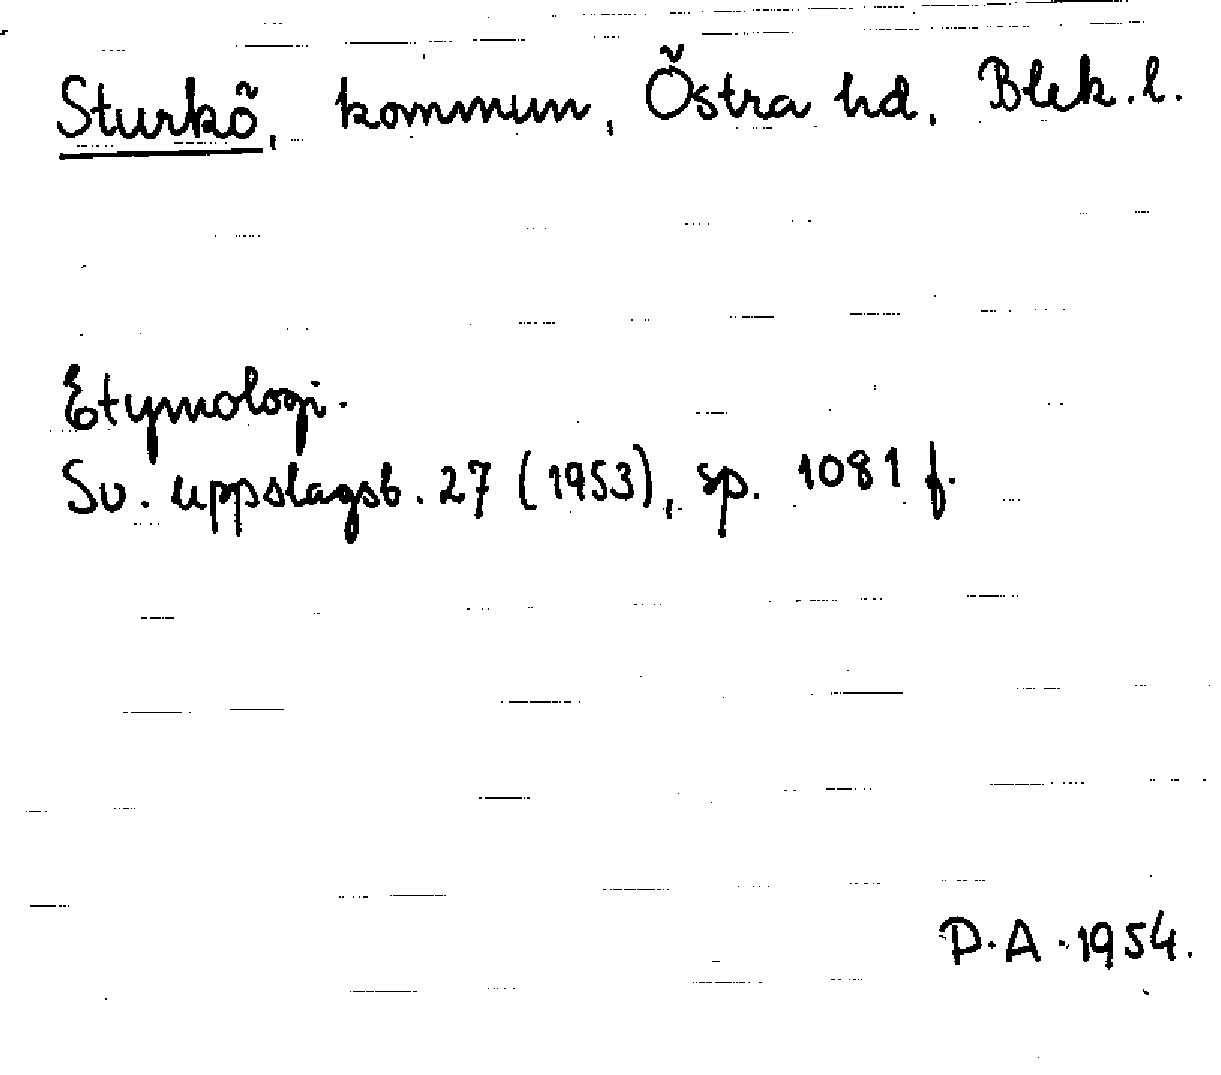 Sturkö, kommun, Östra hd, Blek. l.
Etymologi.
Sv. uppslagsb. 27 (1953), sp. 1081 f.
D. A. 1954.